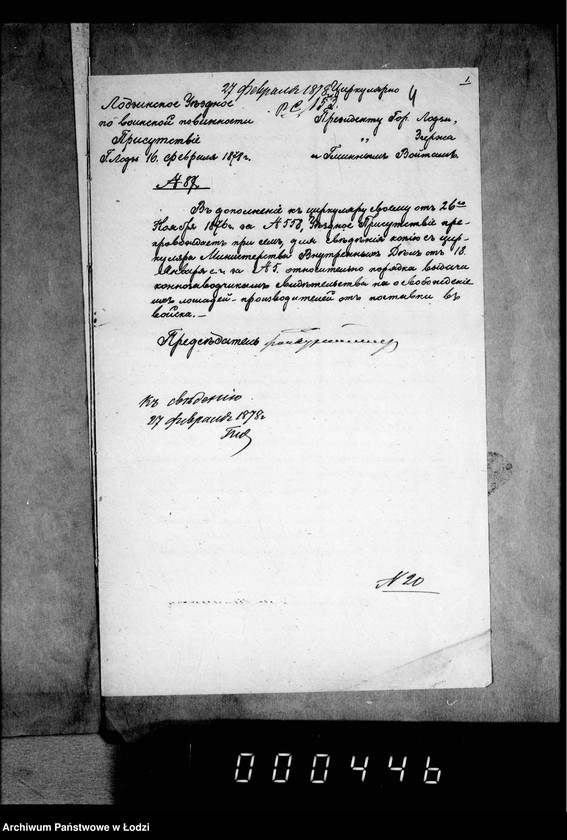 27 февраля 1878 Циркулярно 4 1.
Лодзинское Уѣздное Р.С. 1573
по воинской повинности Президенту Гор. Лодзи,
Присутствіе „ Згержа
Г. Лодзь 16 февраля 1878 г. и Гминнымъ Войтамъ
№ 87
Въ дополненіе къ циркуляру своему отъ 26го
Ноября 1876 г. за № 558, Уѣздное Присутствіе пре-
провождаетъ при семъ, для свѣдѣнія копію съ цир-
куляра Министерства Внутреннихъ Дѣлъ отъ 18
Января с. г. за № 5. относительно порядка выдачи
коннозаводчикамъ свидѣтельства на освобожденіе
ихъ лошадей-производителей отъ поставки въ
войска. —
Предсѣдатель
Къ свѣденію
27 февраля 1878 г
№ 20
000446
Archiwum Państwowe w Łodzi